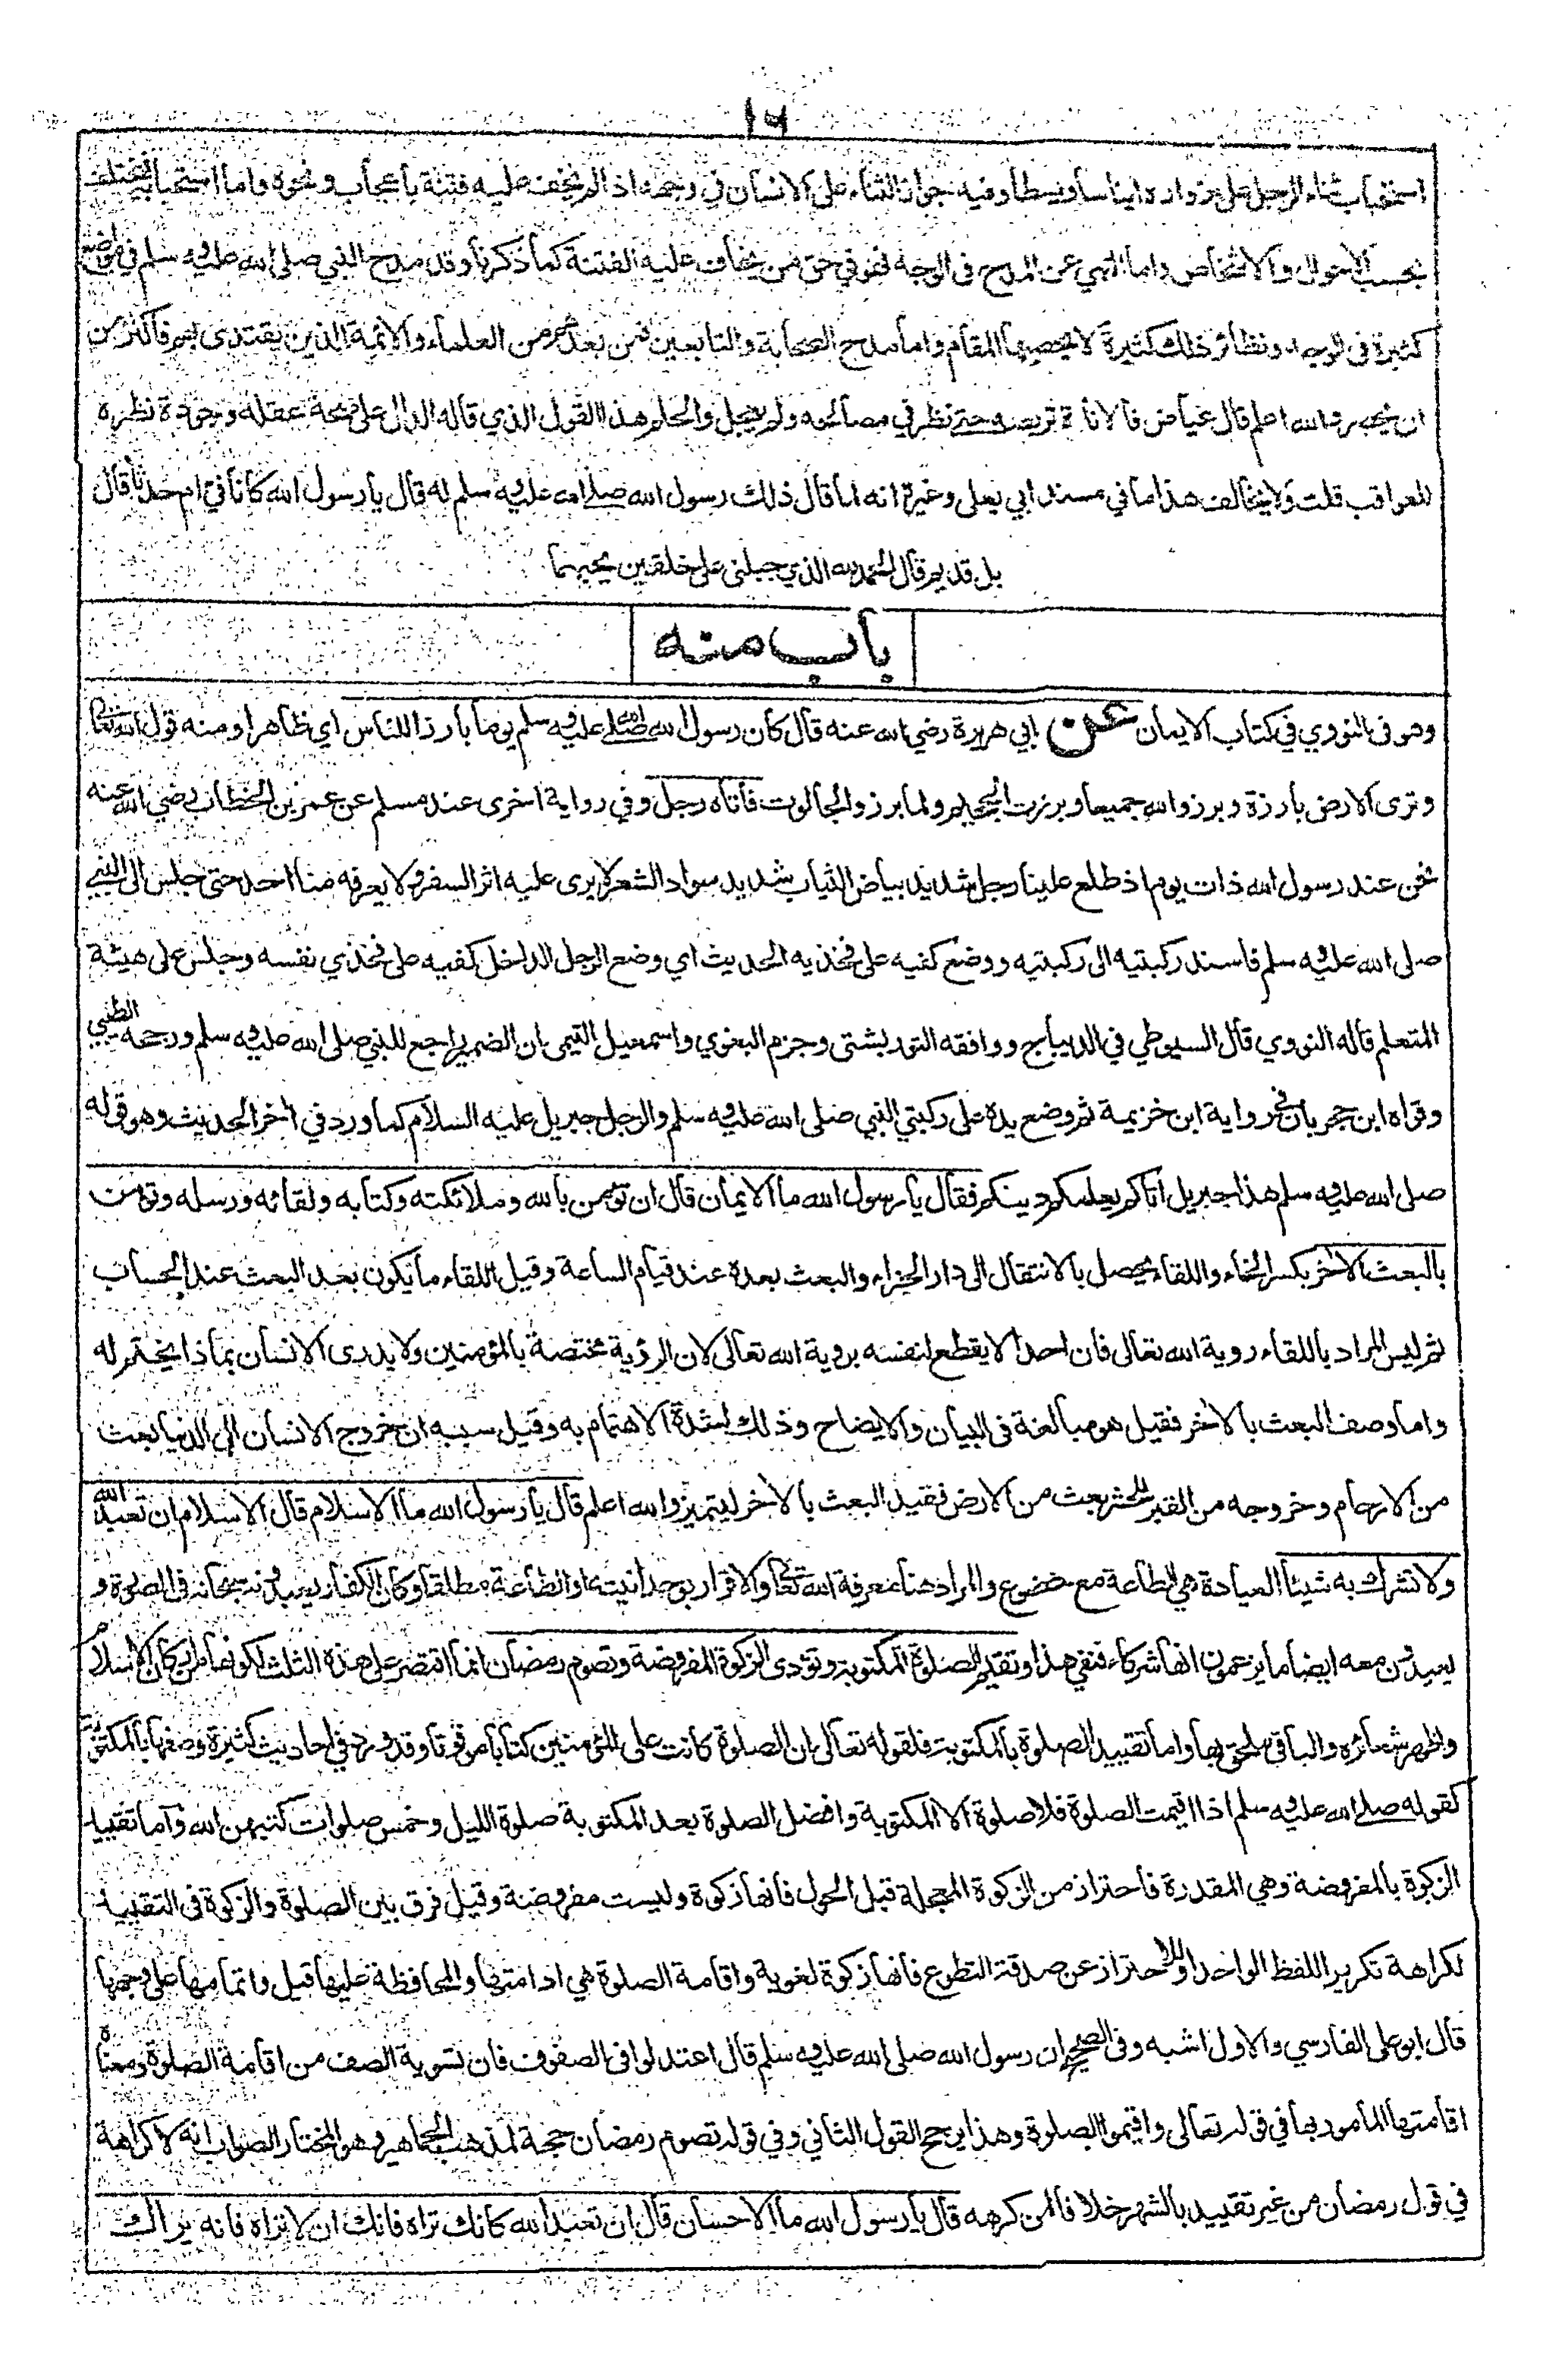 ١٦
استحباب ثناء الرجل على زواره ايناسا وبسطا وفيه جواز الثناء على الانسان في وجهه اذا لم يخف عليه فتنة باعجاب ونحوه واما استحبابه فيختلف
بحسب الاحوال والاشخاص واما النهي عن المدح في الوجه فهو في حق من يخاف عليه الفتنة كما ذكرنا وقد مدح النبي صلى الله عليه وسلم في مواضع
كثيرة في الوجه ونظائر ذلك كثيرة لا يحصيها المقام واما مدح الصحابة والتابعين فمن بعدهم من العلماء والائمة الذين يقتدى بهم فاكثر من
ان يحصر والله اعلم قال عياض فالاناة تربصه حتى نظر في مصالحه ولم يعجل والحلم هذا القول الذي قاله الدال على صحة عقله وجودة نظره
للعواقب قلت ولا يخالف هذا ما في مسند ابي يعلى وغيره انه لما قال ذلك رسول الله صلى الله عليه وسلم له قال يا رسول الله كانا في ام حدثا قال
بل قديم قال الحمد لله الذي جبلني على خلقين يحبهما
باب منه
وهو في النووي في كتاب الايمان عن ابي هريرة رضي الله عنه قال كان رسول الله صلى الله عليه وسلم يوما بارزا للناس اي ظاهرا ومنه قول الله تعالى
وترى الارض بارزة وبرزوا لله جميعا وبرزت الجحيم ولما برزوا لجالوت فأتاه رجل وفي رواية اخرى عند مسلم عن عمر بن الخطاب رضي الله عنه
نحن عند رسول الله ذات يوم اذ طلع علينا رجل شديد بياض الثياب شديد سواد الشعر لا يرى عليه اثر السفر ولا يعرفه منا احد حتى جلس الى النبي
صلى الله عليه وسلم فاسند ركبتيه الى ركبتيه ووضع كفيه على فخذيه الحديث اي وضع الرجل الداخل كفيه على فخذي نفسه وجلس على هيئة
المتعلم قاله النووي قال السيوطي في الديباج ووافقه التوربشتى وجزم البغوي واسمعيل التيمي بان الضمير راجع للنبي صلى الله عليه وسلم ورجحه الطيبي
وقواه ابن حجر بان في رواية ابن خزيمة ثم وضع يده على ركبتي النبي صلى الله عليه وسلم والرجل جبريل عليه السلام كما ورد في اخر الحديث وهو قوله
صلى الله عليه وسلم هذا جبريل اتاكم يعلمكم دينكم فقال يا رسول الله ما الايمان قال ان تؤمن بالله وملائكته وكتابه ولقائه ورسله وتؤمن
بالبعث الاخر بكسر الخاء واللقاء يحصل بالانتقال الى دار الجزاء والبعث بعده عند قيام الساعة وقيل اللقاء ما يكون بعد البعث عند الحساب
ثم ليس المراد باللقاء روية الله تعالى فان احدا لا يقطع لنفسه بروية الله تعالى لان الرؤية مختصة بالمؤمنين ولا يدرى الانسان بماذا يختم له
واما وصف البعث بالاخر فقيل هو مبالغة في البيان والايضاح وذلك لشدة الاهتمام به وقيل سببه ان خروج الانسان الى الدنيا بعث
من الارحام وخروجه من القبر للحشر بعث من الارض فقيد البعث بالاخر ليتميز والله اعلم قال يا رسول الله ما الاسلام قال الاسلام ان تعبد الله
ولا تشرك به شيئا العبادة هي الطاعة مع خضوع والمراد هنا معرفة الله تعالى والاقرار بوحدانيته او الطاعة مطلقا وكان الكفار يعبدونه سبحانه في الصورة و
يعبدون معه ايضا ما يزعمون انها شركاء فنفي هذا وتقيم الصلوة المكتوبة وتؤدى الزكوة المفروضة وتصوم رمضان انما اقتصر على هذه الثلث لكونها من اركان الاسلام
واظهر شعائره والباقي ملحق بها واما تقييد الصلوة بالمكتوبة فلقوله تعالى ان الصلوة كانت على المؤمنين كتابا موقوتا وقد ورد في احاديث كثيرة وصفها بالمكتوبة
كقوله صلى الله عليه وسلم اذا اقيمت الصلوة فلا صلوة الا المكتوبة وافضل الصلوة بعد المكتوبة صلوة الليل وخمس صلوات كتبهن الله واما تقييد
الزكوة بالمفروضة وهي المقدرة فاحتراز من الزكوة المعجلة قبل الحول فانها زكوة وليست مفروضة وقيل فرق بين الصلوة والزكوة في التقييد
لكراهة تكرير اللفظ الواحد او للاحتراز عن صدقة التطوع فانها زكوة لغوية واقامة الصلوة هي ادامتها والمحافظة عليها قيل واتمامها على وجهها
قال ابو على الفارسي والاول اشبه وفي الصحيح ان رسول الله صلى الله عليه وسلم قال اعتدلوا في الصفوف فان تسوية الصف من اقامة الصلوة ومعناه
اقامتها المامور بها في قوله تعالى واقيموا الصلوة وهذا يرجح القول الثاني وفي قوله تصوم رمضان حجة لمذهب الجماهير وهو المختار الصواب انه لا كراهة
في قول رمضان من غير تقييد بالشهر خلافا لمن كرهه قال يا رسول الله ما الاحسان قال ان تعبد الله كانك تراه فانك ان لا تراه فانه يراك